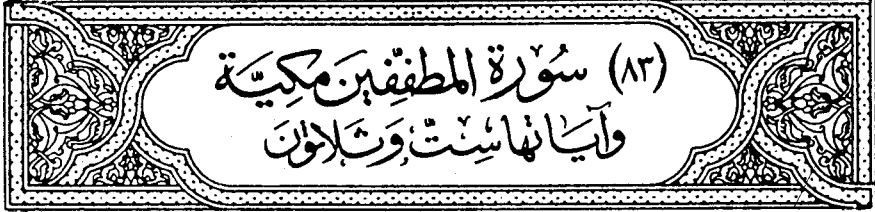 (٨٣) سُورَة المطفِّفين مَكيَّة
وآياتها سِتّ وَثَلاثونَ